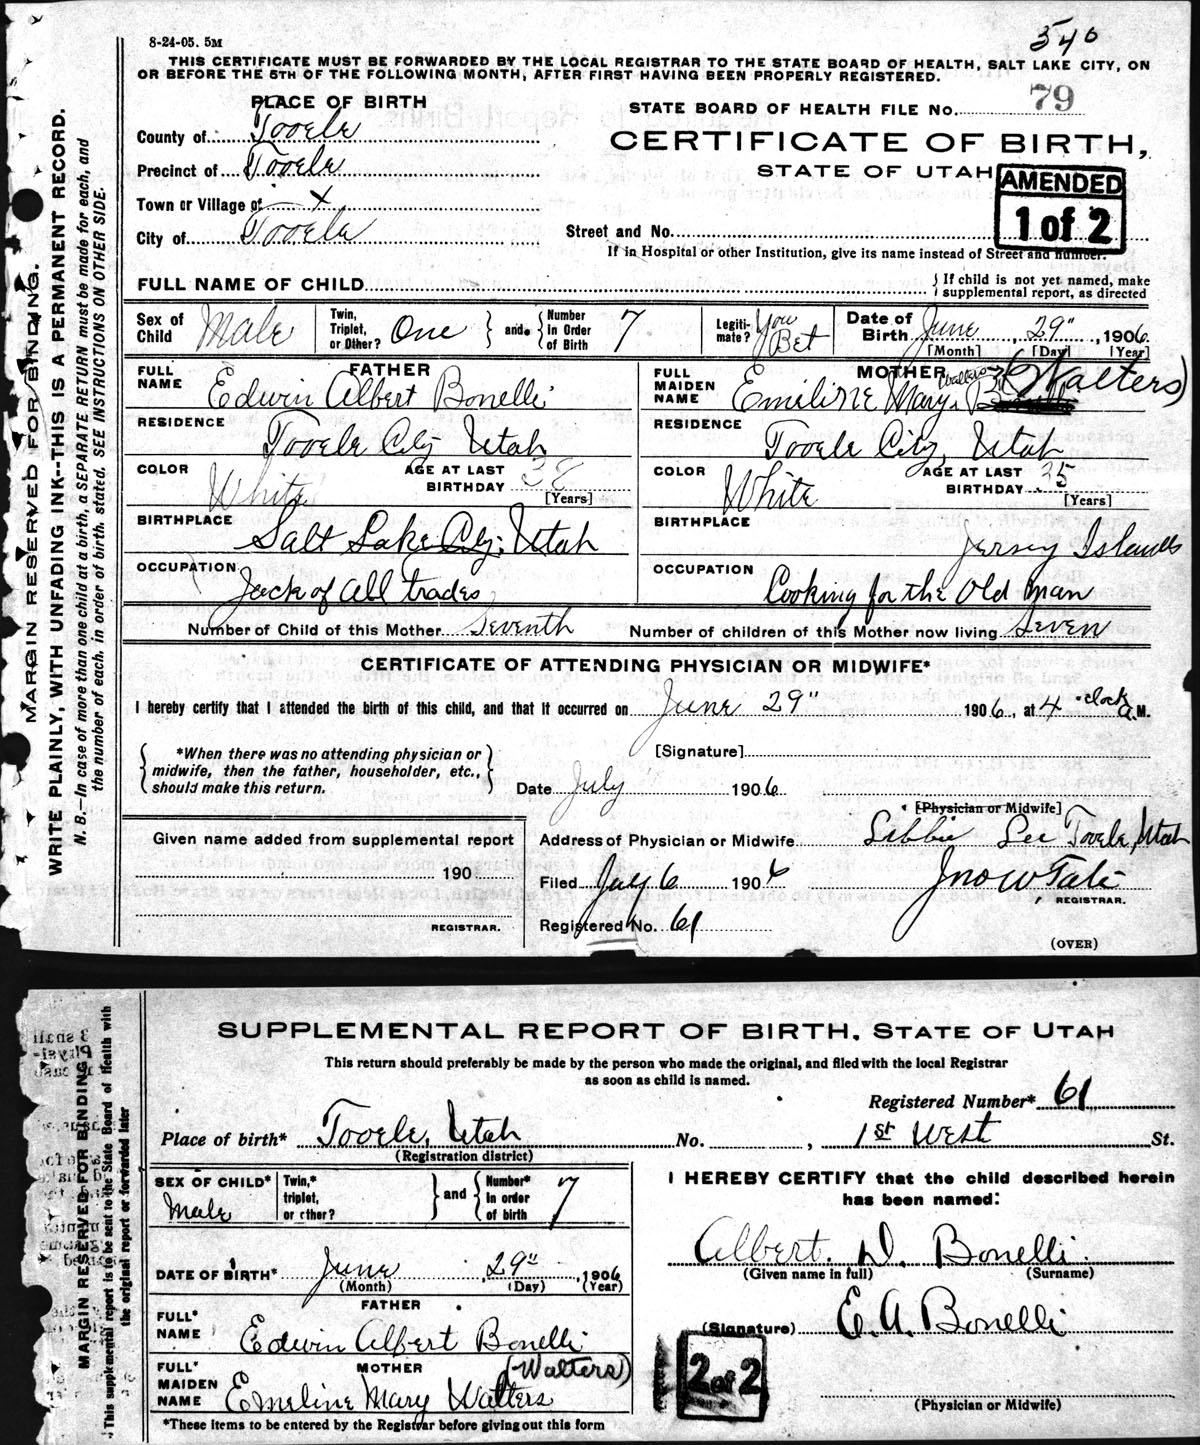 8-24-05. 5M
540
THIS CERTIFICATE MUST BE FORWARDED BY THE LOCAL REGISTRAR TO THE STATE BOARD OF HEALTH, SALT LAKE CITY, ON
OR BEFORE THE 5TH OF THE FOLLOWING MONTH, AFTER FIRST HAVING BEEN PROPERLY REGISTERED.
PLACE OF BIRTH
STATE BOARD OF HEALTH FILE No. 79
County of Tooele
CERTIFICATE OF BIRTH,
Precinct of Tooele
STATE OF UTAH
AMENDED
1 of 2
Town or Village of x
City of Tooele
Street and No.
If in Hospital or other Institution, give its name instead of Street and number.
FULL NAME OF CHILD
} If child is not yet named, make
supplemental report, as directed
Sex of Child Male
Twin, Triplet, or Other? One } and { Number In Order of Birth 7
Legiti- mate? You Bet
Date of Birth June 29", 1906
[Month] [Day] [Year]
FATHER
FULL NAME Edwin Albert Bonelli
RESIDENCE Tooele City Utah
COLOR White
AGE AT LAST BIRTHDAY 38 [Years]
BIRTHPLACE Salt Lake City, Utah
OCCUPATION Jack of all trades
MOTHER
FULL MAIDEN NAME Emiline Mary Walters (Walters)
RESIDENCE Tooele City, Utah
COLOR White
AGE AT LAST BIRTHDAY 35 [Years]
BIRTHPLACE Jersey Islands
OCCUPATION Cooking for the Old man
Number of Child of this Mother Seventh
Number of children of this Mother now living Seven
CERTIFICATE OF ATTENDING PHYSICIAN OR MIDWIFE*
I hereby certify that I attended the birth of this child, and that it occurred on June 29" 1906, at 4 o'clock A.M.
{ *When there was no attending physician or
midwife, then the father, householder, etc.,
should make this return. }
[Signature]
Date July 1906
[Physician or Midwife]
Given name added from supplemental report
190
REGISTRAR.
Address of Physician or Midwife Libbie Lee Tooele, Utah
Filed July 6 1906 Jno W Tate
REGISTRAR.
Registered No. 61
(OVER)
MARGIN RESERVED FOR BINDING.
WRITE PLAINLY, WITH UNFADING INK--THIS IS A PERMANENT RECORD.
N. B.—In case of more than one child at a birth, a SEPARATE RETURN must be made for each, and
the number of each, in order of birth, stated. SEE INSTRUCTIONS ON OTHER SIDE.
SUPPLEMENTAL REPORT OF BIRTH, STATE OF UTAH
This return should preferably be made by the person who made the original, and filed with the local Registrar
as soon as child is named.
Registered Number* 61
Place of birth* Tooele, Utah No. , 1st West St.
(Registration district)
SEX OF CHILD* Male
Twin,* triplet, or other? } and { Number* In order of birth 7
DATE OF BIRTH* June 29", 1906
(Month) (Day) (Year)
FATHER
FULL* NAME Edwin Albert Bonelli
MOTHER
FULL* MAIDEN NAME Emeline Mary Walters (Walters)
*These items to be entered by the Registrar before giving out this form
I HEREBY CERTIFY that the child described herein
has been named:
Albert. D. Bonelli.
(Given name in full) (Surname)
(Signature) E. A. Bonelli
2 of 2
(Physician or Midwife)
MARGIN RESERVED FOR BINDING
This supplemental report is to be sent to the State Board of Health with
the original report or forwarded later